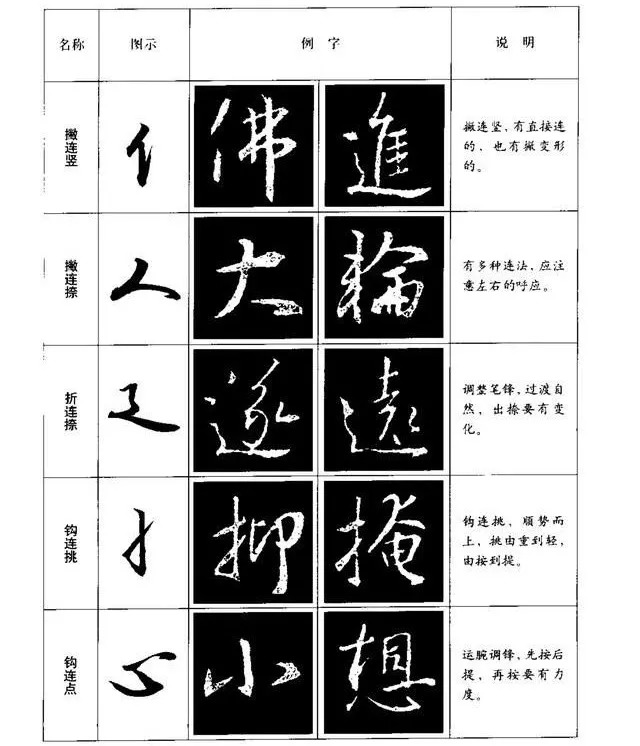 名称 图示 例字 说明
撇连竖 佛 進 撇连竖，有直接连
的，也有撇变形
的。
撇连捺 大 輪 有多种连法，应注
意左右的呼应。
折连捺 遂 遠 调整笔锋，过渡自
然，出捺要有变
化。
钩连挑 抑 掩 钩连挑，顺势而
上，挑由重到轻，
由按到提。
钩连点 小 想 运腕调锋，先按后
提，再按要有力
度。